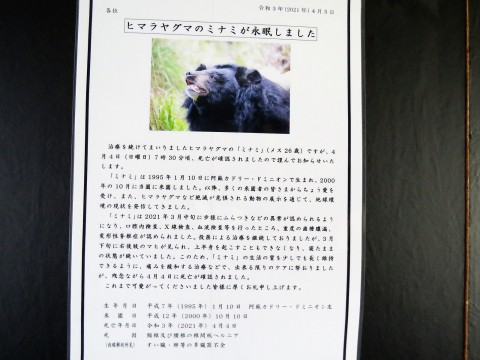 各位
令和3年(2021年)4月5日
ヒマラヤグマのミナミが永眠しました
治療を続けてまいりましたヒマラヤグマの「ミナミ」(メス26歳)ですが、4
月4日(日曜日)7時30分頃、死亡が確認されましたので謹んでお知らせいた
します。
「ミナミ」は1995年1月10日に阿蘇カドリー・ドミニオンで生まれ、2000
年の10月に当園に来園しました。以降、多くの来園者の皆さまからちょう愛
を受け、また、ヒマラヤグマなど絶滅が危惧される動物の展示を通じて、地球環
境の現状を発信してきました。
「ミナミ」は2021年3月中旬に歩様にふらつきなどの異常が認められるよう
になり、口腔内検査、X線検査、血液検査等を行ったところ、重度の歯槽膿漏、
変形性脊椎症が認められました。投薬による治療を継続しておりましたが、3月
下旬に右後肢のマヒが見られ、上半身を起こすこともできなくなり、寝たまま
の状態が続いていました。このため、「ミナミ」の生活の質を少しでも長く維持
できるように、痛みを緩和する治療などで、出来る限りのケアに努めましたが、
残念ながら4月4日に死亡が確認されました。
これまで可愛がってくださいました皆様に厚くお礼申し上げます。
生年月日 平成7年(1995年)1月10日 阿蘇カドリー・ドミニオン生
来園日 平成12年(2000年)10月10日
死亡年月日 令和3年(2021年)4月4日
死因 頸椎及び腰椎の椎間板ヘルニア
(病理解剖所見) すい臓・脾等の多臓器不全